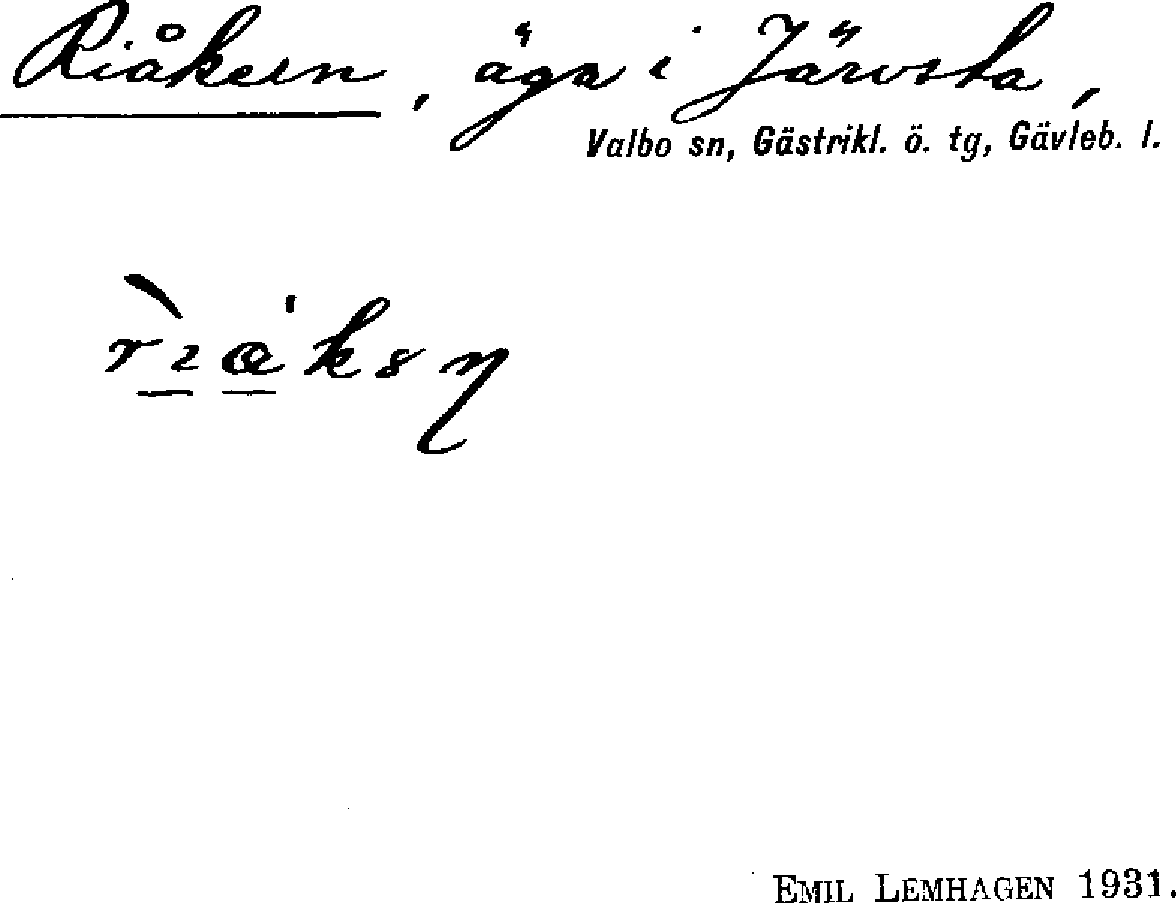 Riåkern, äga i Järvsta,
Valbo sn, Gästrikl. ö. tg, Gävleb. l.
EMIL LEMHAGEN 1931.